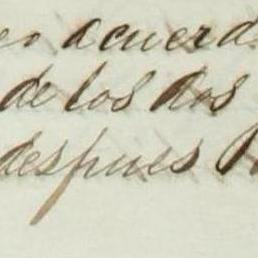 acuerd
de los dos
despues